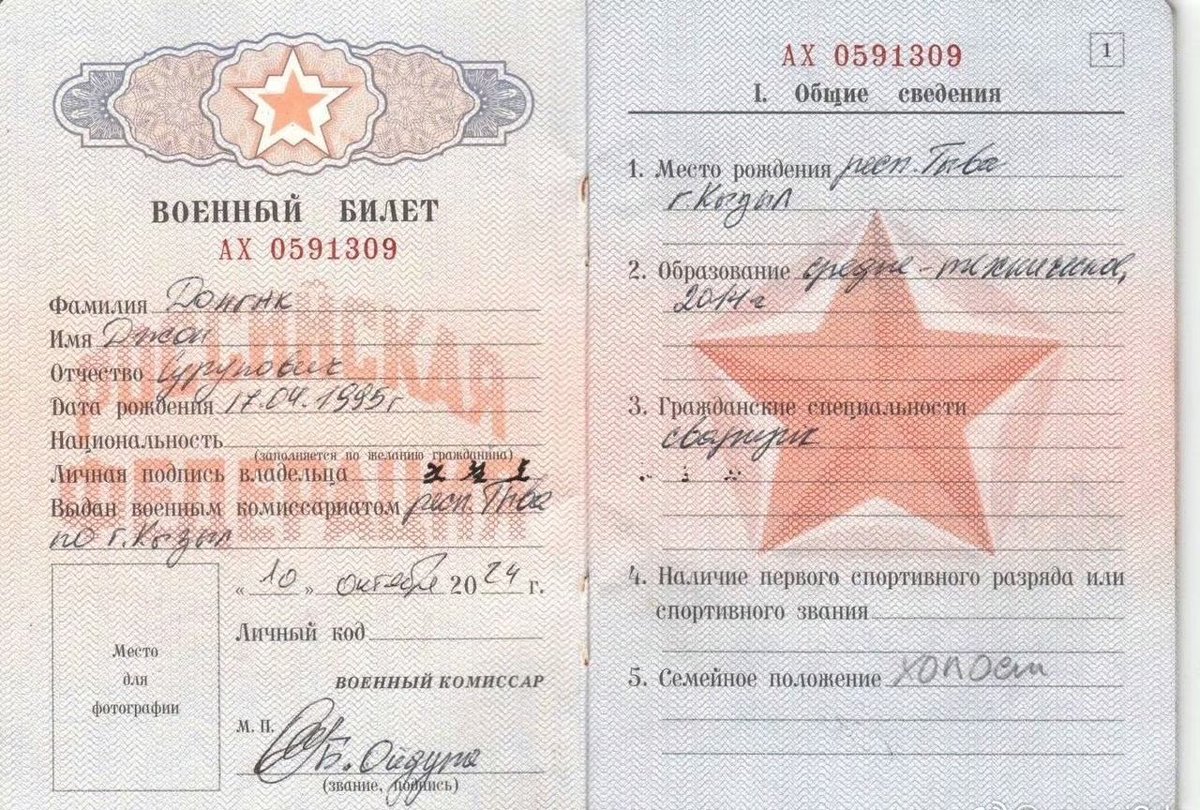 ВОЕННЫЙ БИЛЕТ
АХ 0591309
РОССИЙСКАЯ
ФЕДЕРАЦИЯ
Фамилия Донгак
Имя Джон
Отчество
Дата рождения 17.04.1995г
Национальность
(заполняется по желанию гражданина)
Личная подпись владельца
Выдан военным комиссариатом респ. Тыва
по г. Кызыл
« 10 » октября 2024 г.
Личный код
Место
для
фотографии
ВОЕННЫЙ КОМИССАР
М. П.
Б. Ойдупа
(звание, подпись)
АХ 0591309
1
I. Общие сведения
1. Место рождения респ. Тыва
г. Кызыл
2. Образование средне-техническое,
2014г
3. Гражданские специальности
сварщик
4. Наличие первого спортивного разряда или
спортивного звания
5. Семейное положение холост